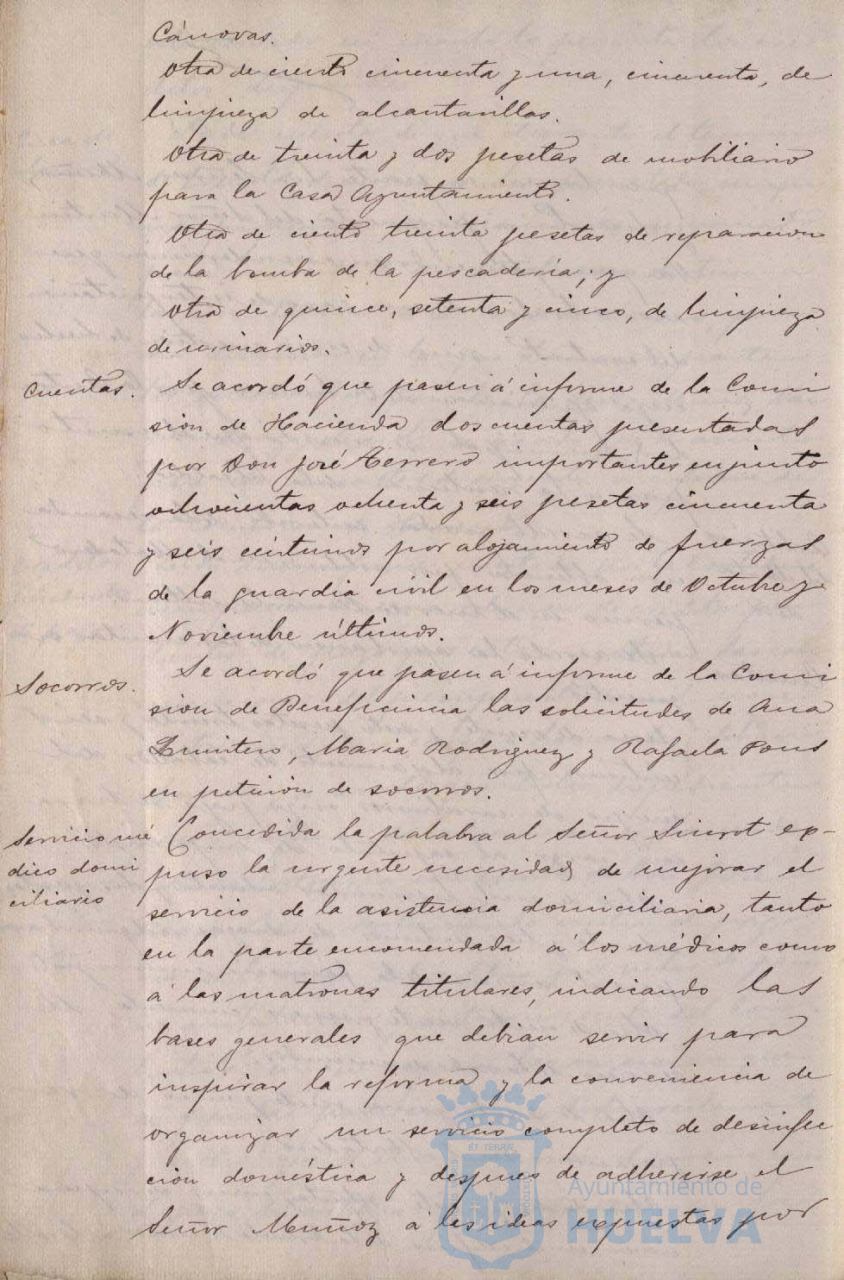 Cánovas.
Otra de ciento cincuenta y una, cincuenta, de
limpieza de alcantarillas.
Otra de treinta y dos pesetas de mobiliario
para la Casa Ayuntamiento.
Otra de ciento treinta pesetas de reparacion
de la bomba de la pescadería; y
Otra de quince, setenta y cinco, de limpieza
de urinarios.
Cuentas.
Se acordó que pasen á informe de la Comi
sion de Hacienda dos cuentas presentadas
por Don José Terrero importantes en junto
ochocientas ochenta y seis pesetas cincuenta
y seis céntimos por alojamiento de fuerzas
de la guardia civil en los meses de Octubre y
Noviembre últimos.
Socorros.
Se acordó que pasen á informe de la Comi
sion de Beneficencia las solicitudes de Ana
Quintero, Maria Rodriguez y Rafaela Pons
en petición de socorros.
Servicio mé
dico domi
ciliario
Concedida la palabra al Señor Siurot ex-
puso la urgente necesidad de mejorar el
servicio de la asistencia domiciliaria, tanto
en la parte encomendada á los médicos como
á las matronas titulares, indicando las
bases generales que debian servir para
inspirar la reforma y la conveniencia de
organizar un servicio completo de desinfec
cion doméstica y despues de adherirse el
Señor Muñoz á las ideas expuestas por
Ayuntamiento de
HUELVA